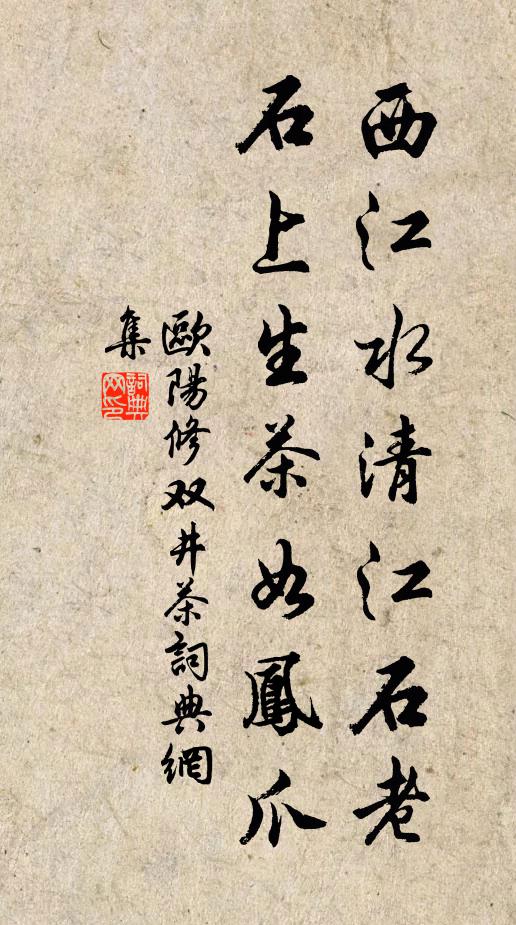 西江水清江石老
石上生茶如鳳爪
歐陽修双井茶詞典網
集
詞典网印